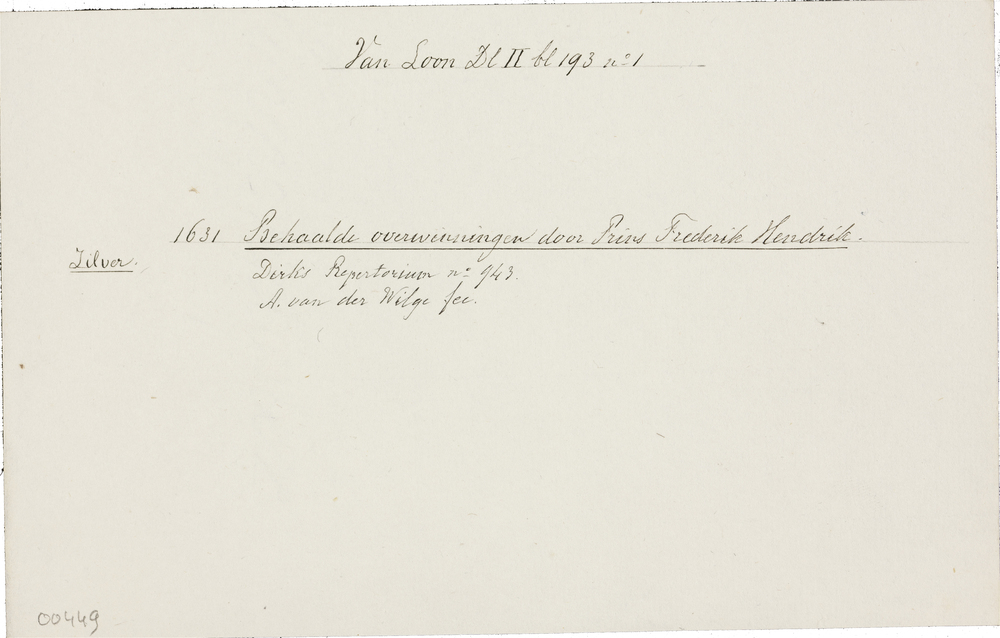 Van Loon Dl II bl 193 no 1
1631 Behaalde overwinningen door Prins Frederik Hendrik.
Zilver.
Dirks Repertorium no 943.
A. van der Wilge fec.
00449